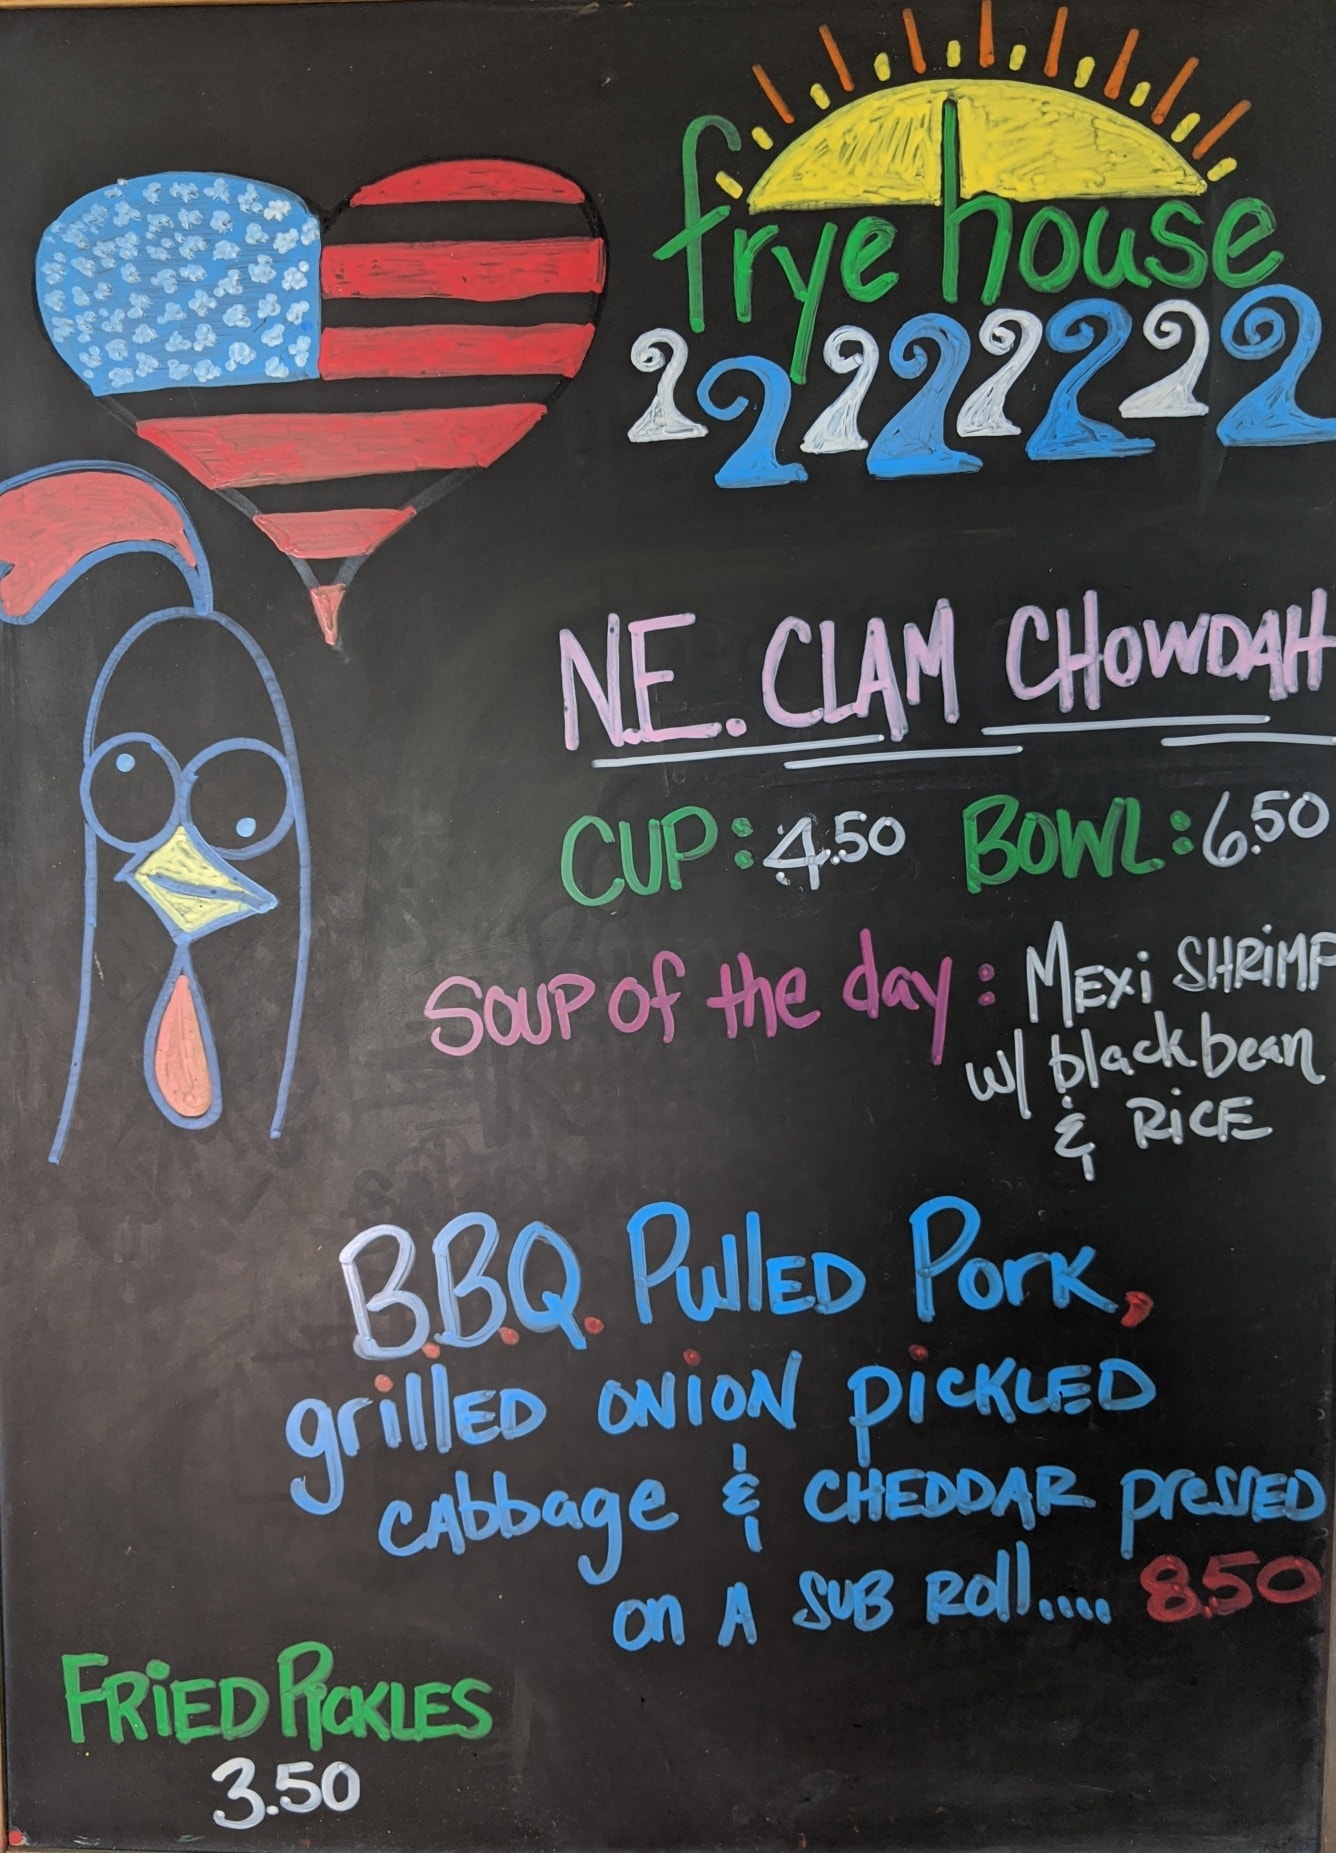 frye house
N.E. CLAM CHOWDAH
CUP: 4.50 BOWL: 6.50
SOUP of the day: MEXI SHRIMP
w/ black bean
& RICE
B.B.Q. PullED PORK,
grillED ONION PICKLED
CAbbage & CHEDDAR pressED
on A SUB ROll..... 8.50
FRiED PICKLES
3.50